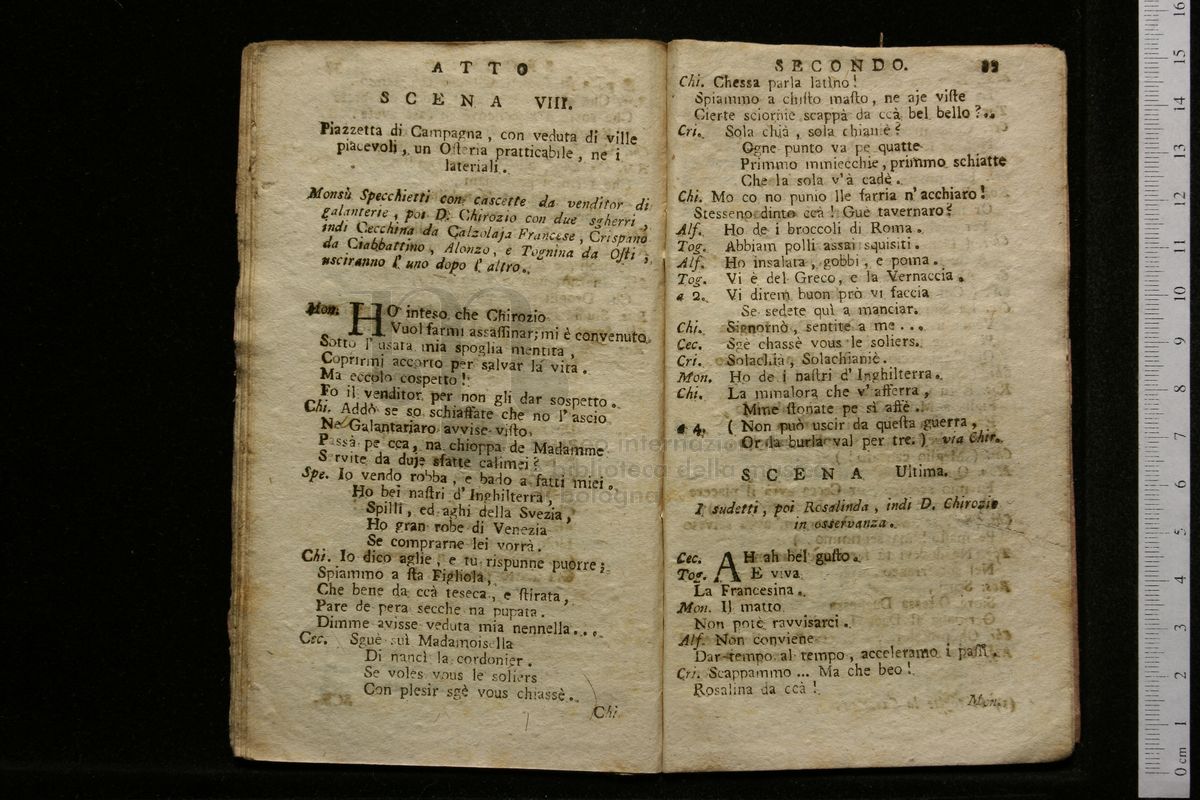 ATTO
SCENA VIII.
Piazzetta di Campagna, con veduta di ville
piacevoli, un Osteria pratticabile, ne i
lateriali.
Monsù Specchietti con cascette da venditor di
galanterie, poi D. Chirozio con due sgherri,
indi Cecchina da Calzolaja Francese, Crispano
da Ciabbattino, Alonzo, e Tognina da Osti,
usciranno l'uno dopo l'altro.
Mon. HO inteso che Chirozio
Vuol farmi assassinar; mi è convenuto
Sotto l'usata mia spoglia mentita,
Coprirmi accorto per salvar la vita.
Ma eccolo cospetto!
Fo il venditor per non gli dar sospetto.
Chi. Addò se so schiaffate che no l'ascio
Ne Galantariaro avvise visto
Passà pe cca, na chioppa de Madamme
Servite da duje sfatte calimei?
Spe. Io vendo robba, e bado a fatti miei.
Ho bei nastri d'Inghilterra,
Spilli, ed aghi della Svezia,
Ho gran robe di Venezia
Se comprarne lei vorrà.
Chi. Io dico aglie, e tu rispunne puorre;
Spiammo a sta Figliola,
Che bene da ccà teseca, e stirata,
Pare de pera secche na pupata.
Dimme avisse veduta mia nennella....
Cec. Sguè sui Madamoisella
Di nancì la cordonier.
Se voles vous le soliers
Con plesir sgè vous chiassè.
Chi
SECONDO. 83
Chi. Chessa parla latino!
Spiammo a chisto masto, ne aje viste
Cierte sciornie scappà da ccà bel bello?..
Cri. Sola chià, sola chianiè?
Ogne punto va pe quatte
Primmo mmiecchie, primmo schiatte
Che la sola v'à cadè.
Chi. Mo co no punio lle farria n'acchiaro!
Stesseno dinto ccà! Gue tavernaro?
Alf. Ho de i broccoli di Roma.
Tog. Abbiam polli assai squisiti.
Alf. Ho insalata, gobbi, e poma.
Tog. Vi è del Greco, e la Vernaccia.
a 2. Vi direm buon prò vi faccia
Se sedete quì a manciar.
Chi. Signornò, sentite a me...
Cec. Sgè chassè vous le soliers.
Cri. Solachià, Solachianiè.
Mon. Ho de i nastri d'Inghilterra.
Chi. La mmalora che v'afferra,
Mme stonate pe sì affè.
a 4. ( Non può uscir da questa guerra,
Or la burla val per tre. ) via Chir.
SCENA Ultima.
I sudetti, poi Rosalinda, indi D. Chirozio
in osservanza.
Cec. AH ah bel gusto.
Tog. E viva
La Francesina.
Mon. Il matto
Non potè ravvisarci.
Alf. Non conviene
Dar tempo al tempo, acceleramo i passi.
Cri. Scappammo ... Ma che beo!
Rosalina da ccà!
Mon.
museo internazionale
e biblioteca della musica
bologna
0 cm 1 2 3 4 5 6 7 8 9 10 11 12 13 14 15 16